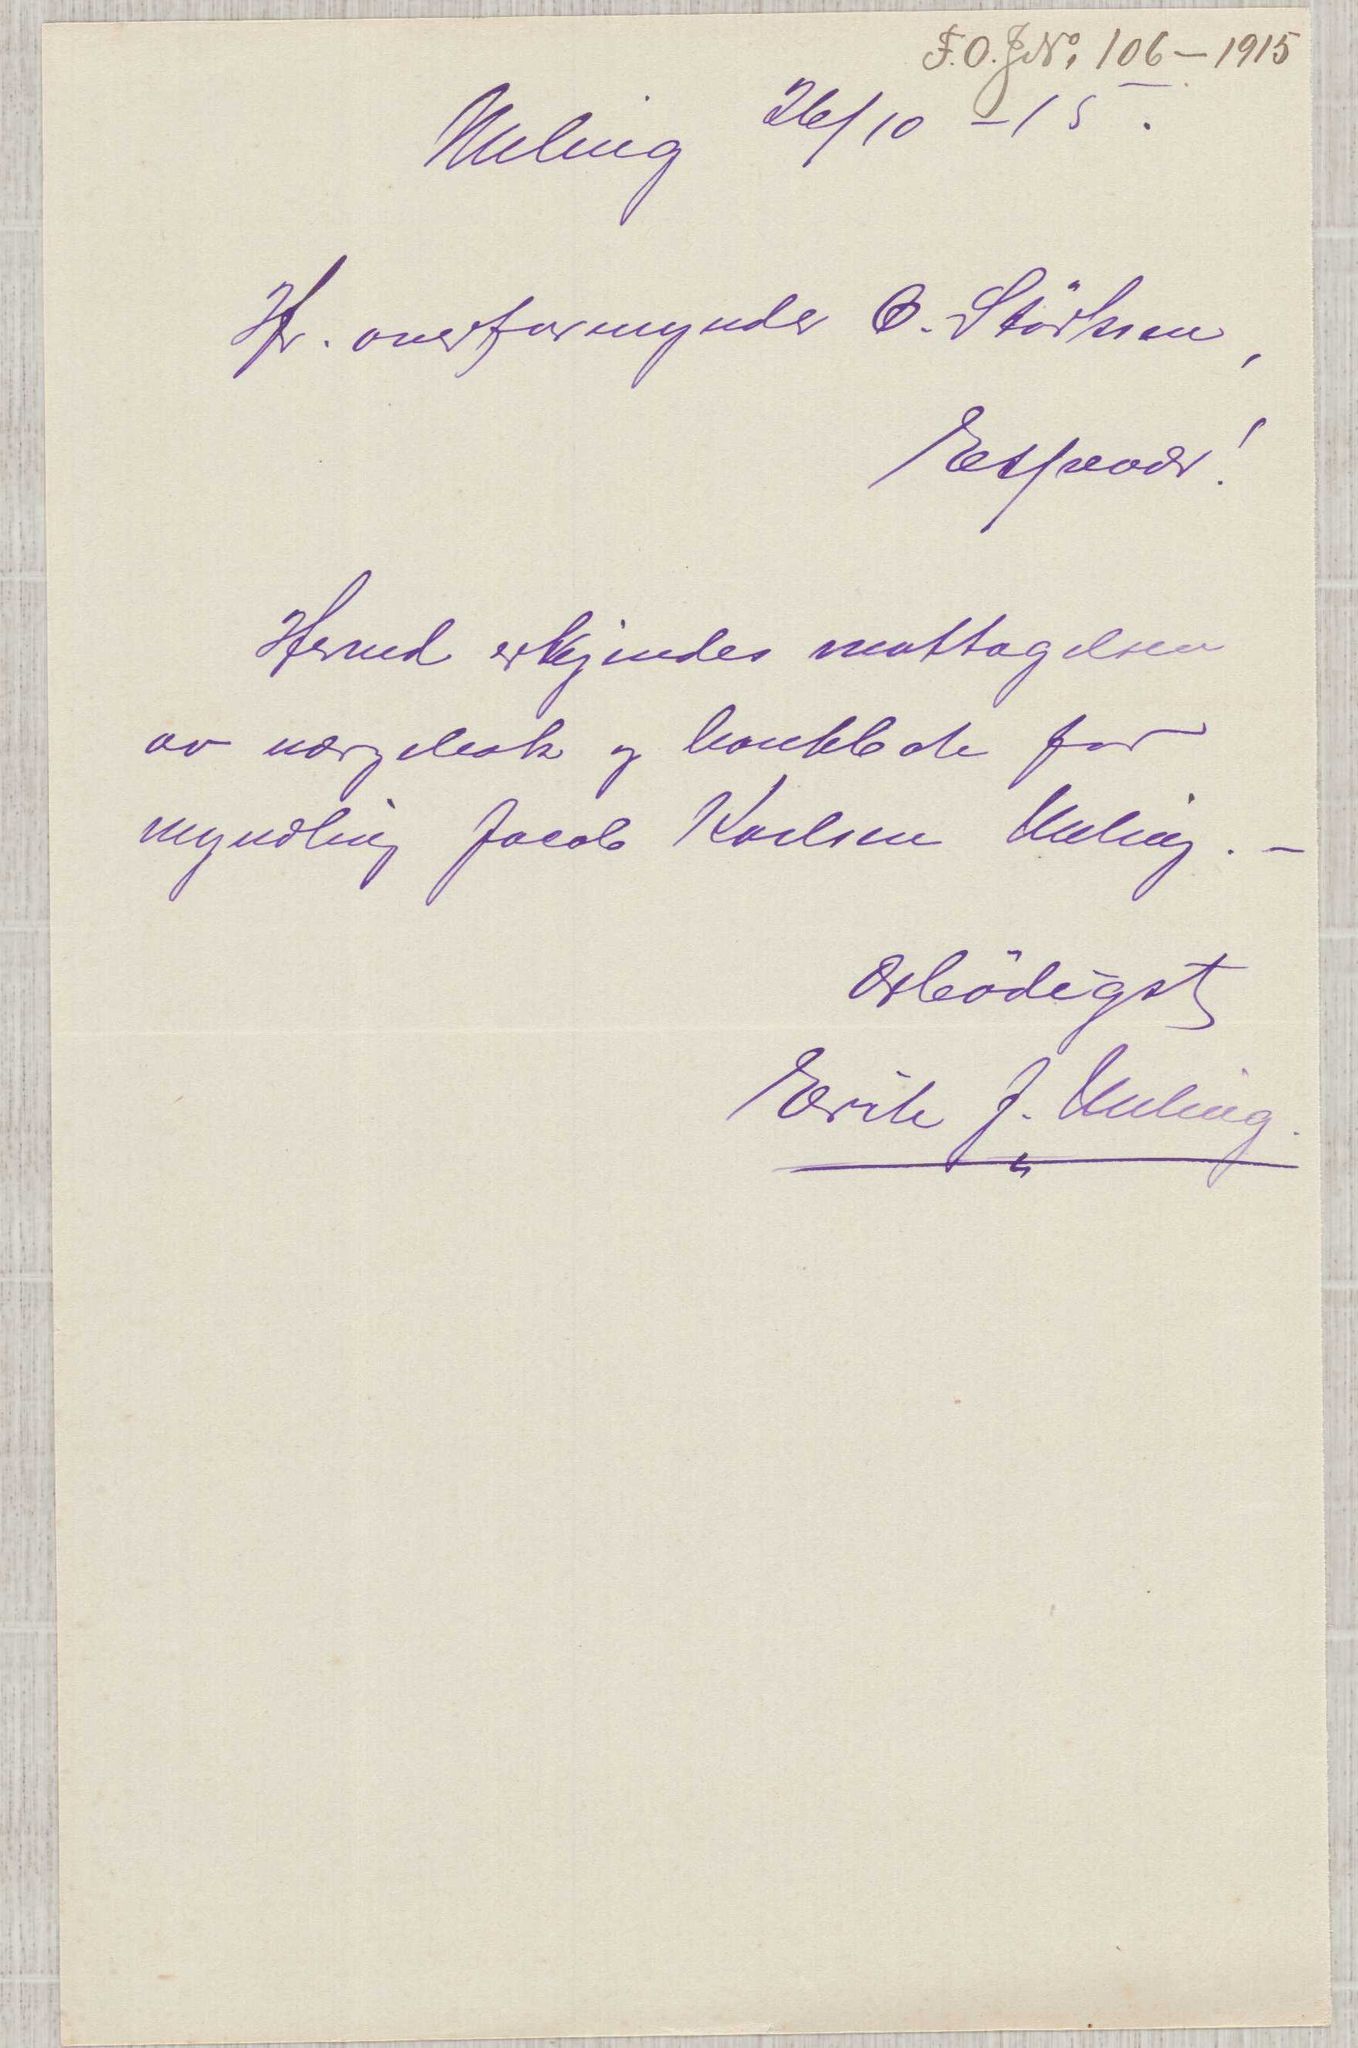 F.O.J.No. 106 – 1915
Meling 26/10 – 15.
Hr. overformynder O. Störksen,
Espevær!
Herved erkjendes mottagelsen
av og bankbok for
myndling Jacob Karlsen Meling. –
Ærbödigst
Erik J. Meling.